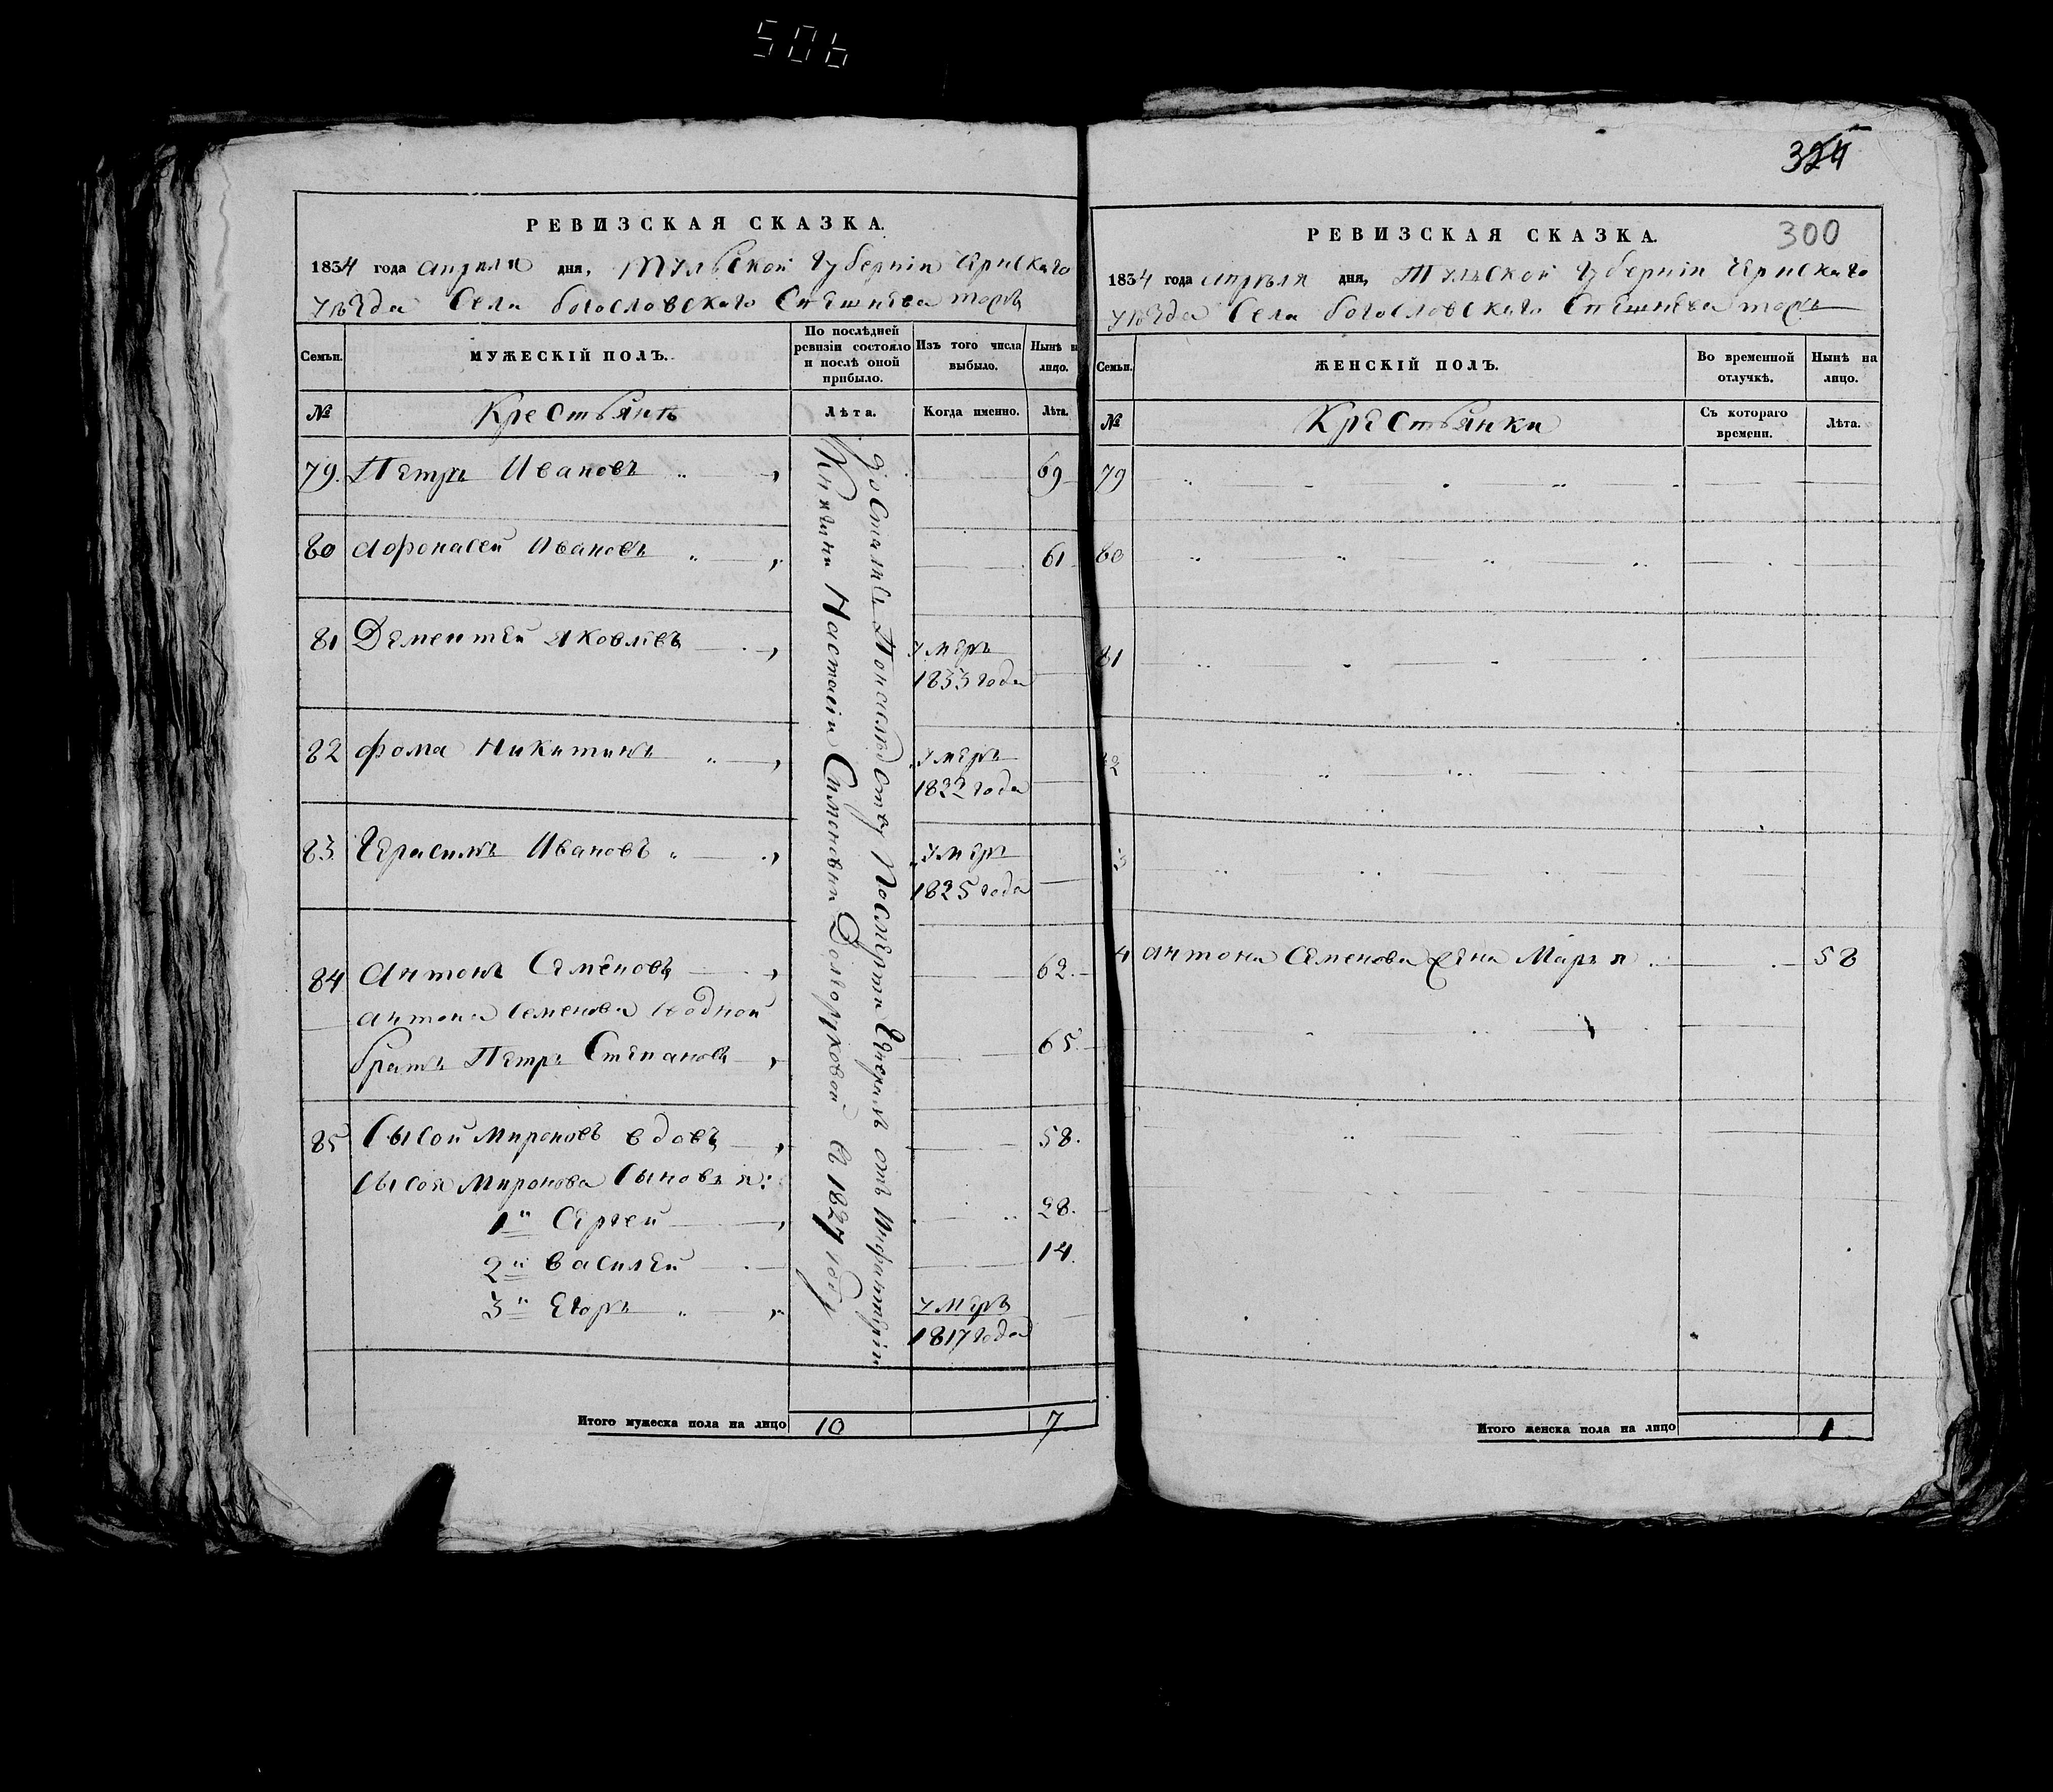 506
РЕВИЗСКАЯ СКАЗКА.
1834 года апреля дня, Тульской Губерніи Чернскаго
уезда Села богословскаго Спешнева тожъ
Семьи. МУЖЕСКІЙ ПОЛЪ. По послѣдней ревизіи состояло и послѣ оной прибыло. Изъ того числа выбыло. Нынѣ на лицо.
№ Крестьянѣ Лѣта. Когда именно. Лѣта.
79. Петръ Ивановъ 69
80 Афонасей Ивановъ 61
81 Дементей Яковлевъ умеръ 1833 года
82 Фома Никитинъ умеръ 1822 года
83 Герасимъ Ивановъ умеръ 1825 года
84 Антонъ Семёновъ 62.
Антона Семенова
братъ Петръ Степановъ 65.
85 Сысой Мироновъ вдовъ 58.
Сысоя Миронова Сыновья:
1й Сергей 28.
2й Василей 14.
3й Егоръ умеръ 1817 года
достались Понаследству Посмерти Генерала отъ Инфантеріи
Княгини Настасіи Сименовни Долгоруковой въ 1827 году
Итого мужеска пола на лицо 10 7
324
300
РЕВИЗСКАЯ СКАЗКА.
1834 года апреля дня, Тульской Губерніи Чернскаго
уезда Села богословскаго Спешнева тожъ
Семьи. ЖЕНСКІЙ ПОЛЪ. Во временной отлучкѣ. Нынѣ на лицо.
№ Крестьянки Съ котораго времени. Лѣта.
79
80
81
2
3
4 Антона Семенова жена Марья 58
Итого женска пола на лицо 1